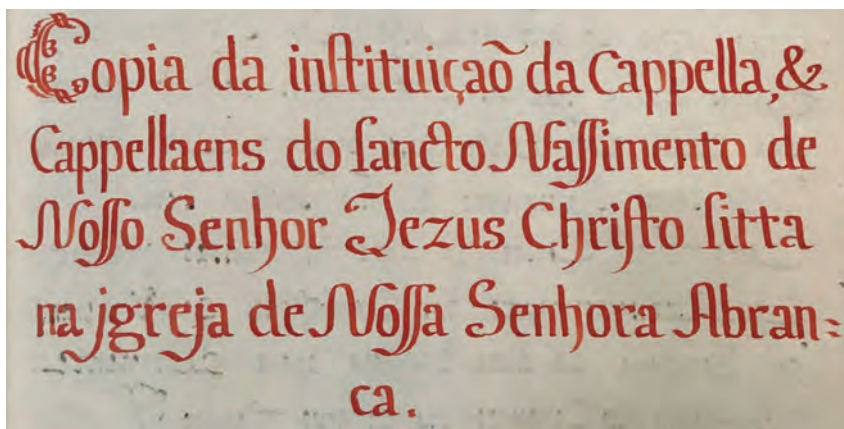 Copia da inſtituiçaõ da Cappella, &
Cappellaens do ſancto Naſſimento de
Noſſo Senhor Jezus Chriſto ſitta
na jgreja de Noſſa Senhora Abran=
ca.